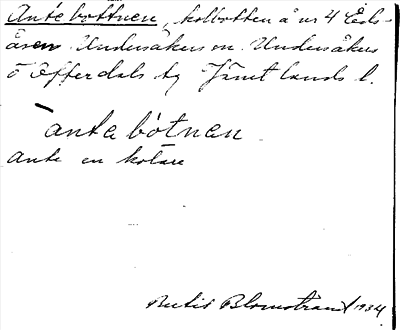 Antebottnen, kolbotten å nr 4 Eds-
åsen Undersåkers sn. Undersåkers
o Offerdals tg Jämtlands l.
antebòtnen
Ante en kolare
Bertil Blomstrand 1934